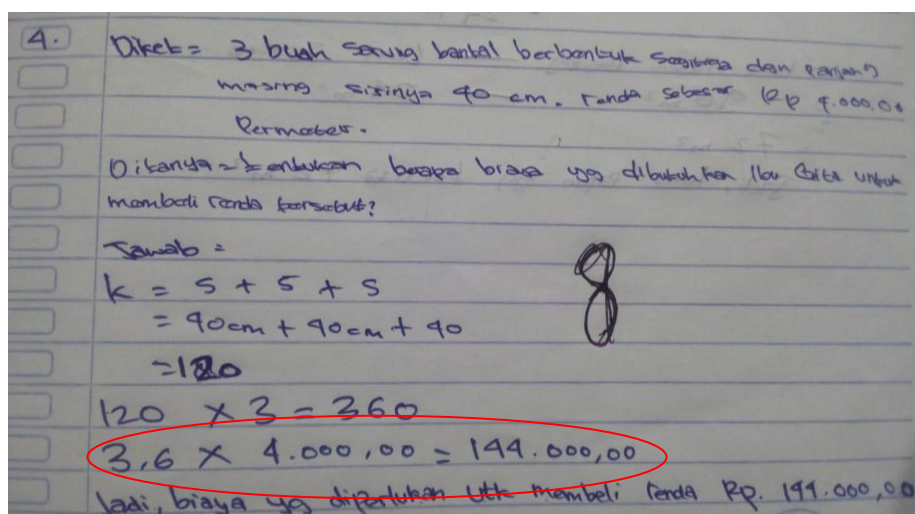 4.
Diket = 3 buah sarung bantal berbentuk segitiga dan panjang
masing sisinya 40 cm. renda sebesar Rp 4.000,00
Permeter.
Ditanya = tentukan berapa biaya yg dibutuhkan Ibu Gita untuk
membeli renda tersebut?
Jawab =
k = s + s + s
= 40cm + 40cm + 40
=120
8
120 × 3 = 360
3,6 × 4.000,00 = 144.000,00
Jadi, biaya yg diperlukan utk membeli renda Rp. 144.000,00